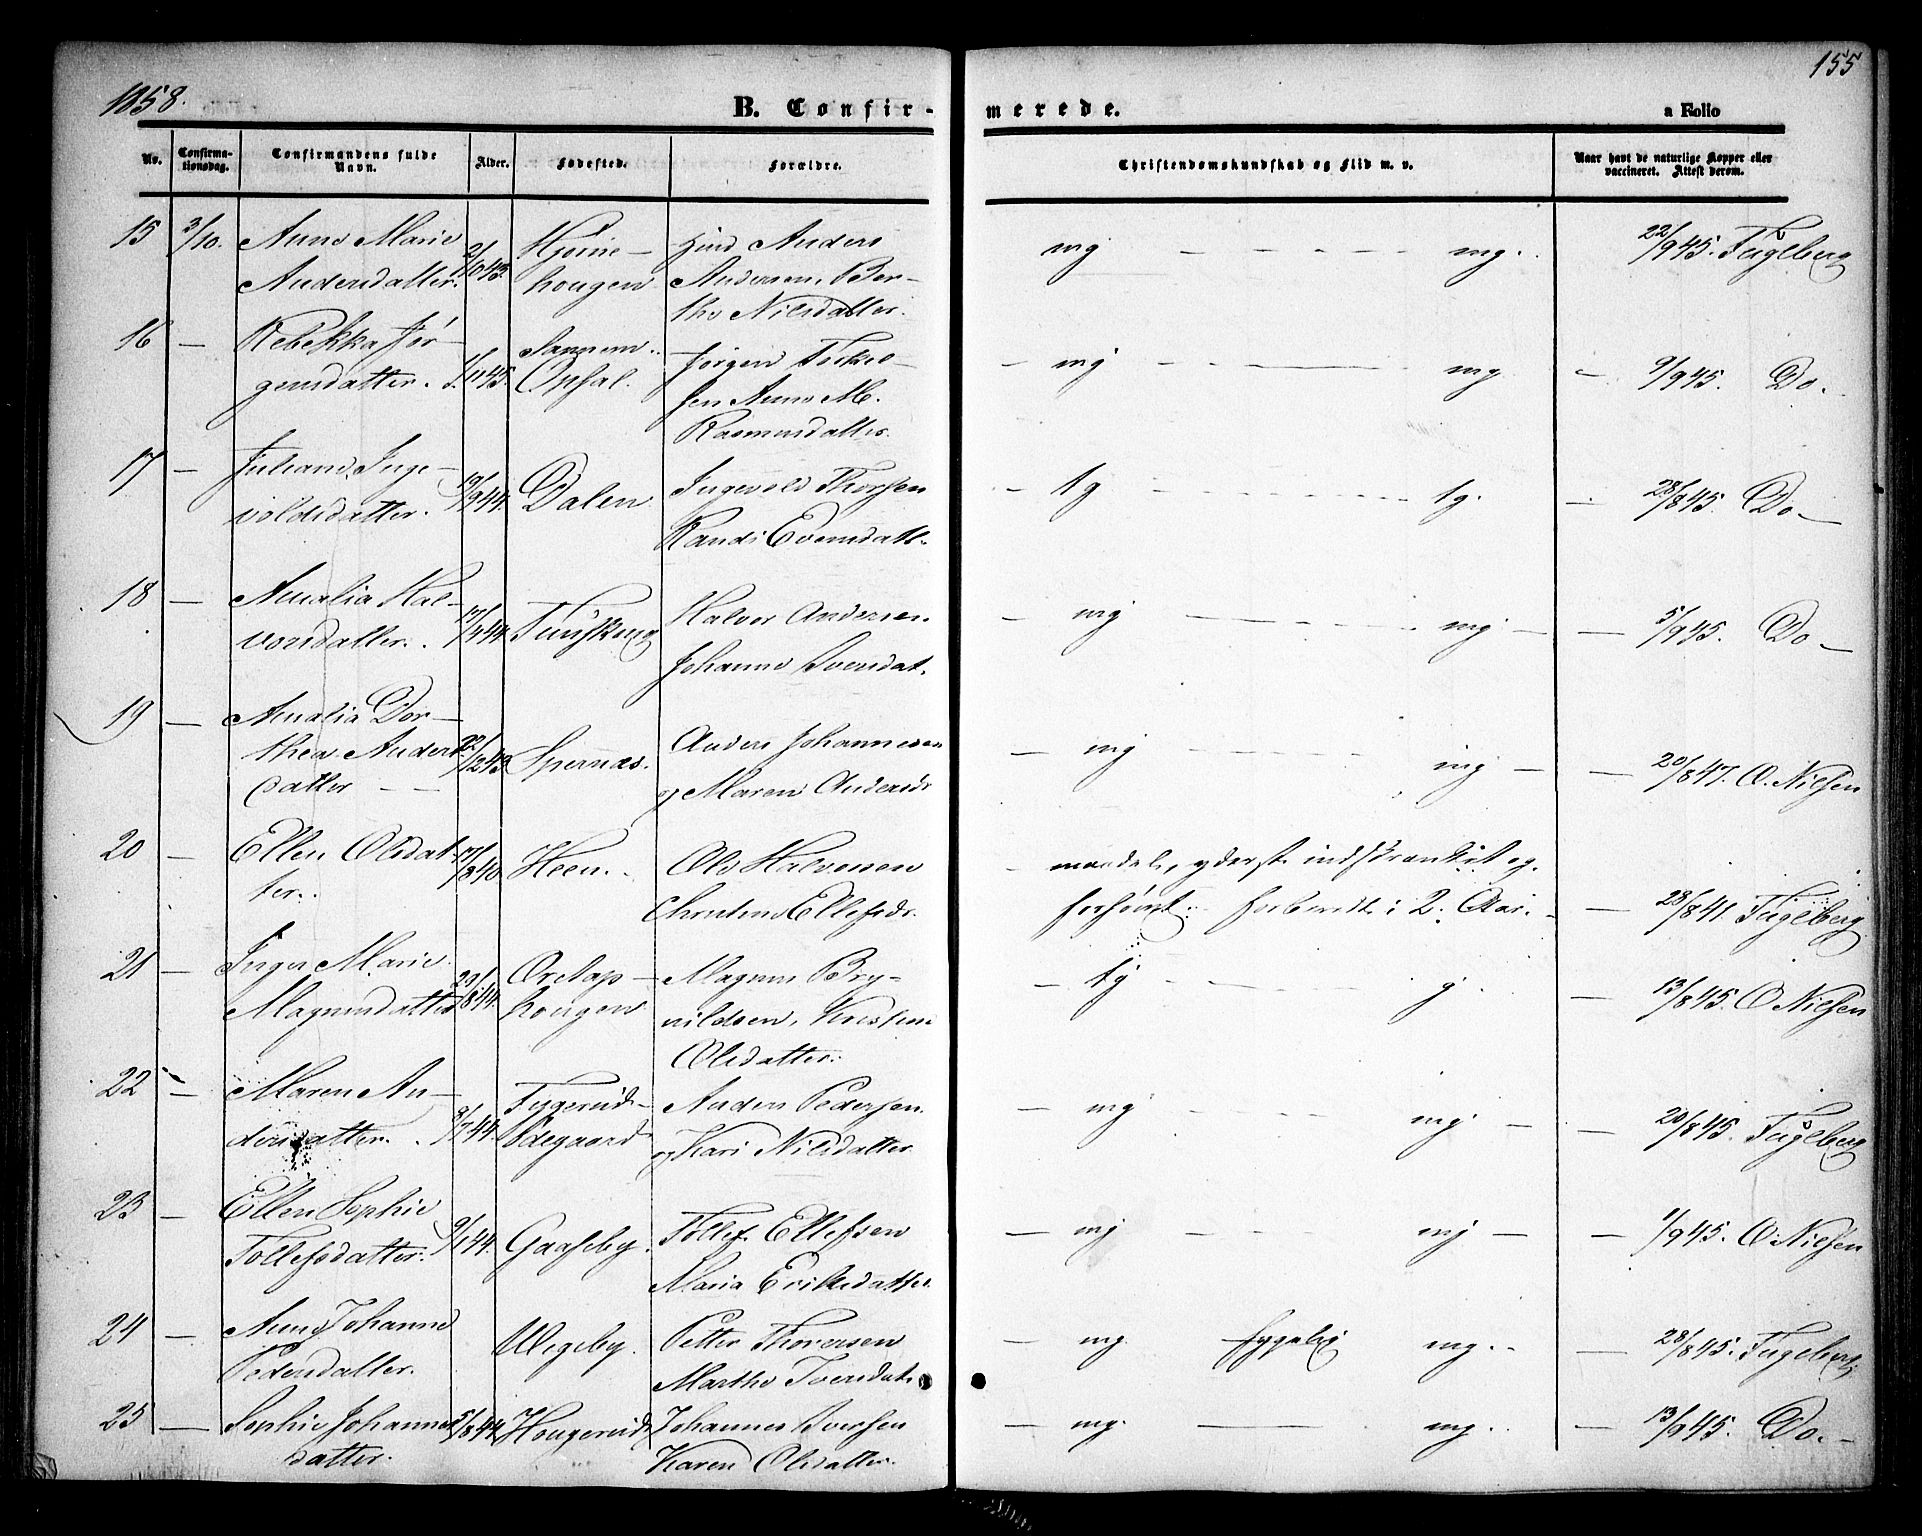 1858.
155
B. Confir-
merede.
a Folio
No.
Confirma-
tionsdag.
Confirmandens fulde
Navn.
Alder.
Fødested.
Forældre.
Christendomskundskab og Flid m. v.
Naar havt de naturlige Kopper eller
vaccineret. Attest derom.
15 3/10. Anne Marie
Andersdatter. 2/10 43. 
hougen Anders
Andersen, Ber-
the Nilsdatter.
mg - - - - - mg. 22/9 45. Fuglberg
16 — Rebekka Jør-
gensdatter. 1/11 45. 
Opsal. Jørgen
sen Anne M.
Rasmusdatter.
- mg - - - mg - 9/9 45. Do.
17 — Juliane Inge-
voldsdatter. 19/9 44. Dalen Ingevold Thorsen
Randi Evensdatt.
- tg - - - tg. - 28/8 45. Do —
18 — Amalia Hal-
vorsdatter. 17/4 44. Halvor Andersen
Johanne Iversdat.
- mg - - - mg — — 5/9 45. Do —
19 — Amalia Dor-
thea Anders
datter — — 22/12 43. Spernæs. Anders Johannesen
og Maren Andersdr
— mg - - - mg — — 20/8 47. O. Nielsen
20 — Ellen Olsdat-
ter. 17/8 40. Heen. Ole Halvorsen
Christine Ellefsdr.
- maadel. yderst indskrænket og
forsømt. forberedt i 2 Aar. — 28/8 41. Fuglberg
21 — Inger Marie
Magnusdatter 20/8 44. 
hougen Magnus Bry-
nildsen, Kirsten
Olsdatter.
- tg - - - g. — 13/8 45. O Nielsen
22 — Maren An-
dersdatter. 3/7 44. 
Ødegaard Anders Pedersen
og Kari Nilsdatter
— mg - - - mg — — 20/8 45. Fuglberg
23 — Ellen Sophie
Tollefsdatter. 9/1 44. Gaaseby. Tollef Ellefsen
Maria Eriksdatter.
— mg - - - mg — — 1/9 45. O. Nielsen
24 — Anne Johanne
Pedersdatter. Wegeby. Petter Thoresen
Marthe Iversdat.
— mg. hyggelig mg. — 28/8 45. Fugleberg
25 — Sophie Johannes
datter. 5/8 44. Hougerud Johannes Iversen
Karen Olsdatter.
— mg. — mg. — 13/9 45. Do. —